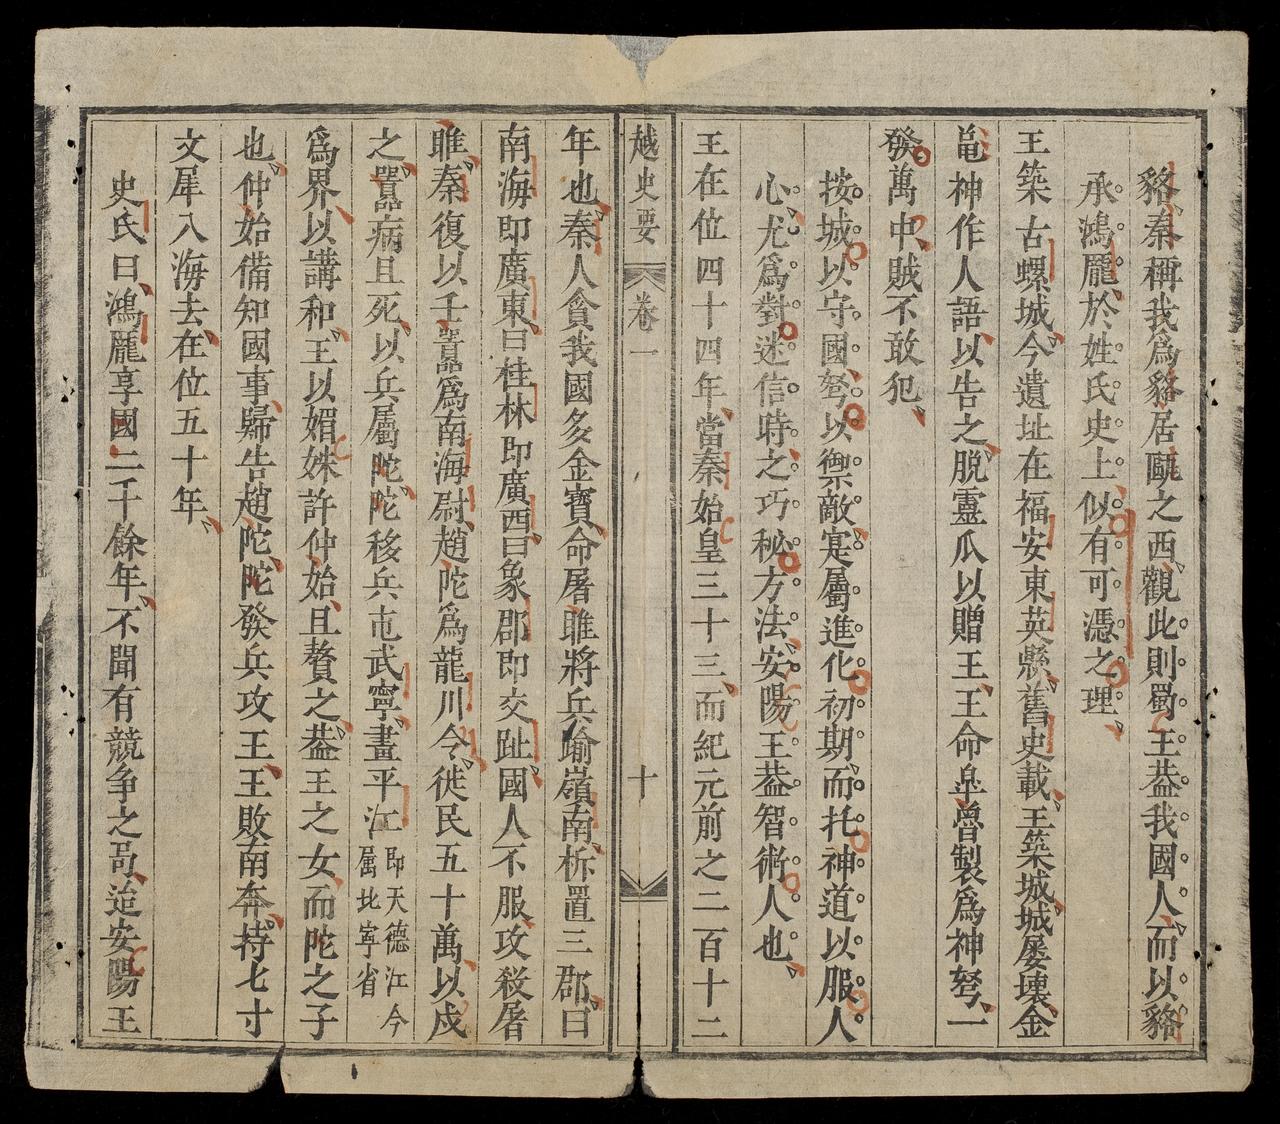 貉、秦稱我爲貉居甌之西、觀此則蜀王葢我國人、而以貉
承鴻龎於姓氏史上、似有可憑之理、
王築古螺城、今遺址在福安東英縣、舊史載、王築城、城屡壞、金
龜神作人語、以告之、脫靈瓜以贈王、王命臯魯製爲神弩、一
發萬中、賊不敢犯、
按城以守國、弩以禦敵、寔属進化初期、而托神道以服人
心、尤爲對迷信時之巧秘方法、安陽王葢智術人也、
王在位四十四年、當秦始皇三十三、而紀元前之二百十二
越史要 卷一 十
年也、秦人貪我國多金寶、命屠睢將兵踰嶺南、柝置三郡、曰
南海即廣東、曰桂林即廣西、曰象郡即交趾、國人不服、攻殺屠
睢、秦復以壬嚣爲南海尉、趙陀爲龍川令、徙民五十萬、以戍
之、嚣病且死、以兵屬陀、陀移兵屯武寧、畫平江即天德江今属比寧省
爲界、以講和、王以媚姝許仲始、且贅之、葢王之女、而陀之子
也、仲始備知國事、歸告趙陀、陀發兵攻王、王敗南奔、持七寸
文犀入海去、在位五十年、
史氏曰、鴻龎享國二千餘年、不聞有競争之咼、迨安陽王